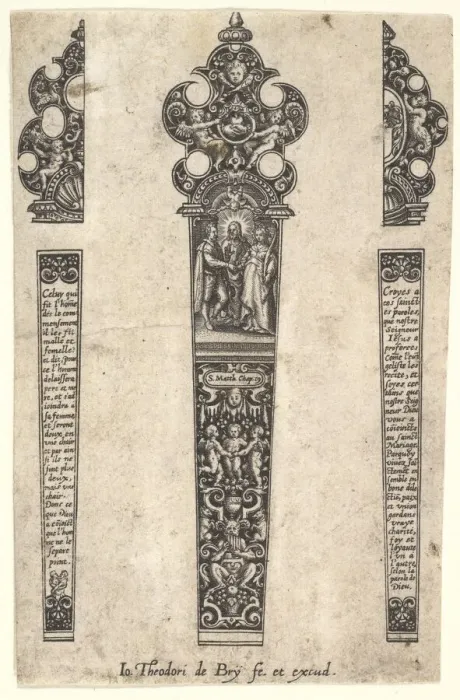 Celuy qui
fit l'hōme
dés le com
mensement
il les fit
malle et
femelle:
et dit: pour
ce l'homme
delaissera
pere et me
re, et s'ad
ioindra a
sa femme
et seront
deux, en
vne chair
et par ain
si ils ne
sont plus
deux,
mais vne
chair.
Donc ce
que Dieu
a
que l'hom
me ne le
separe
point.
S. Matth. Chap. 19
Croyes a
ces sainct
es paroles,
que nostre
Seigneur
Iesus a
proferees
Come l'euā
geliste les
recite, et
soyes cer
tains que
nostre Seig
neur Dieu
vous a
au sainct
Mariage,
Parquoy
viuez
semble en
bone dile
ctiō, paix
et vnion
gardans
vraye
charité,
foy et
loyauté
l'vn a
l'autre,
selon la
parole de
Dieu.
Io. Theodori de Brÿ fe. et excud.